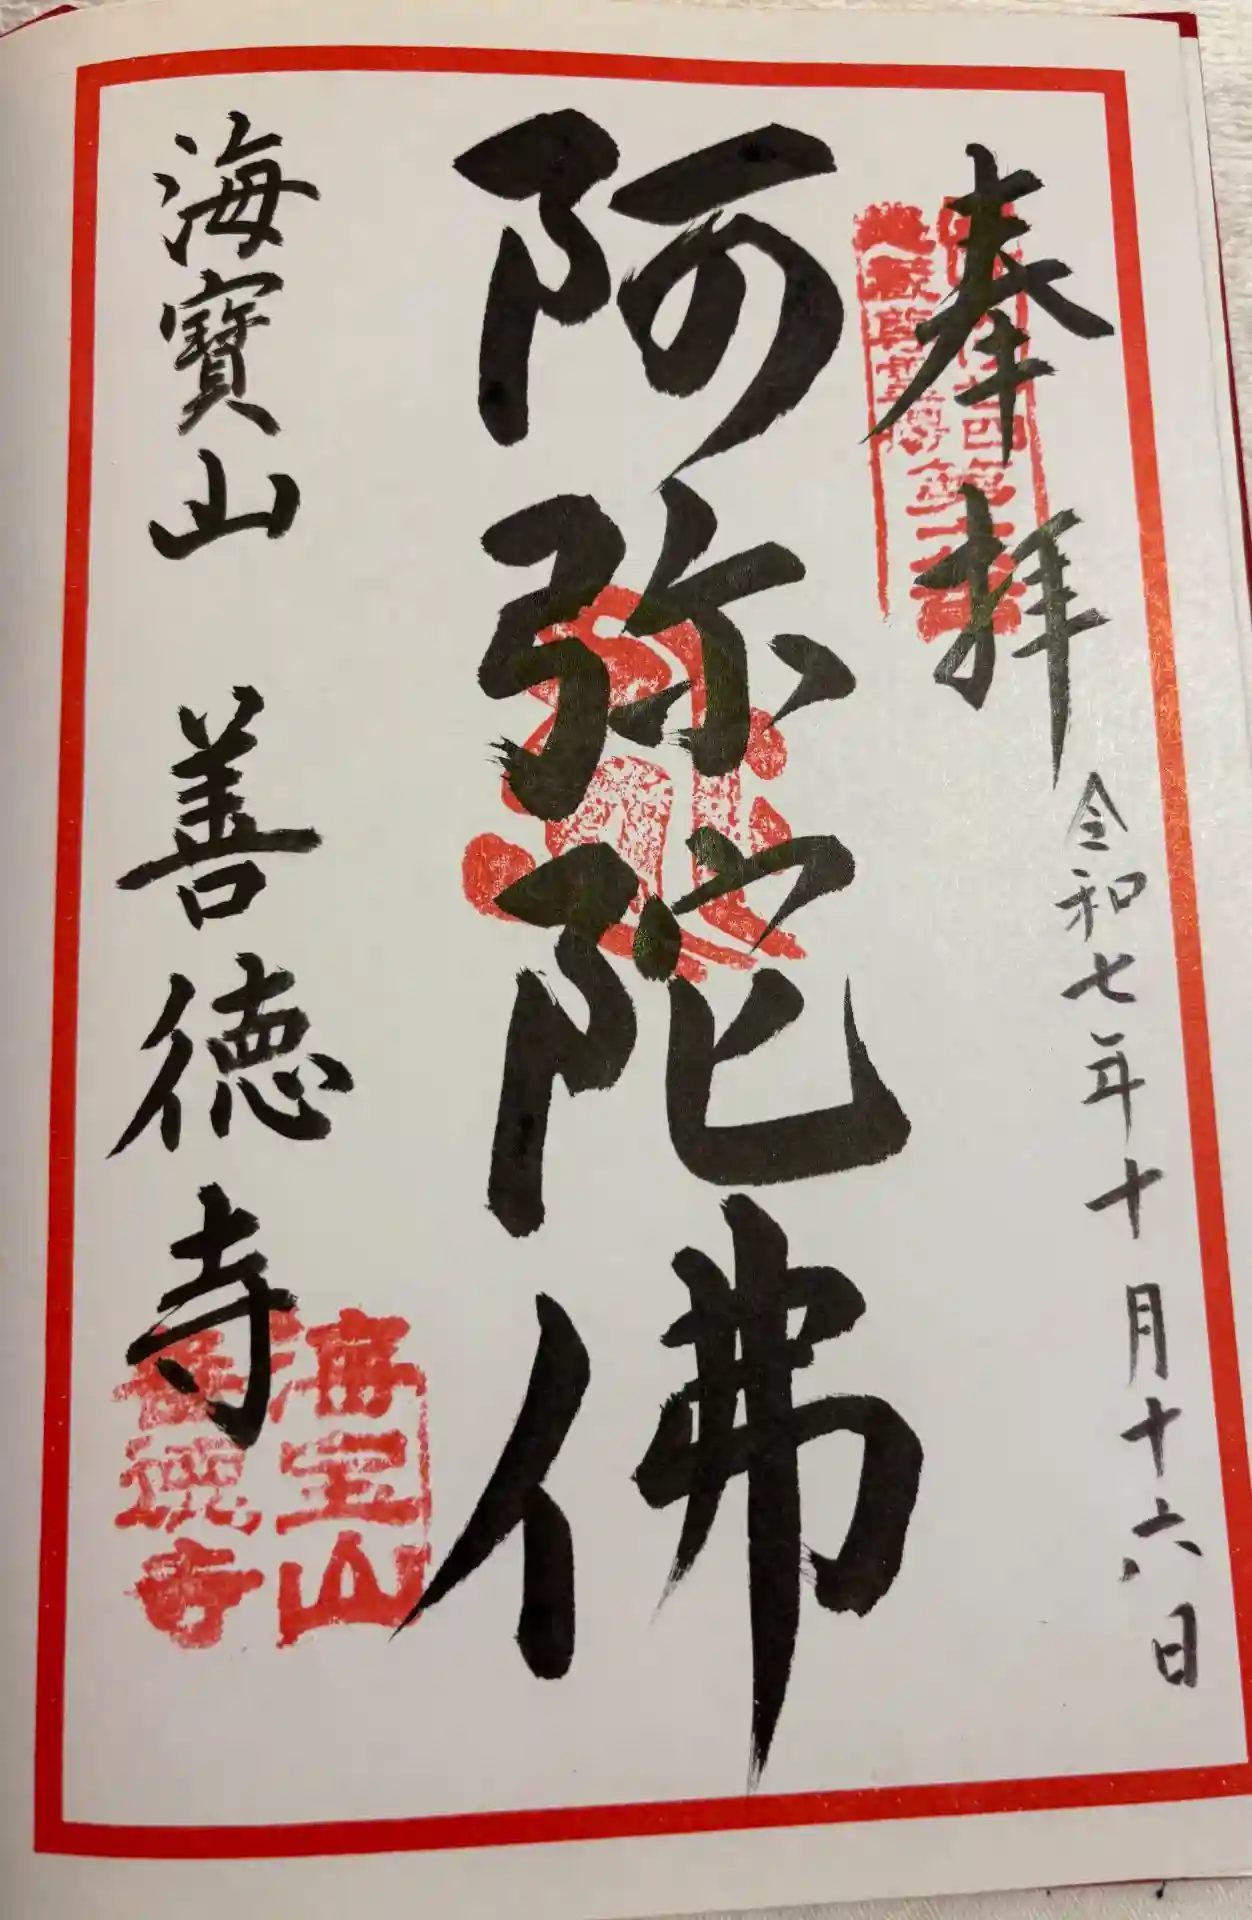 奉拝
令和七年十月十六日
阿弥陀佛
海寳山 善徳寺
海宝山
善徳寺